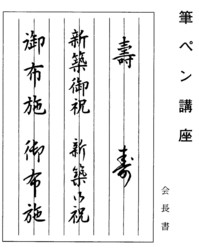 筆ペン講座
会長書
壽 寿
新築御祝 新築御祝
御布施 御布施